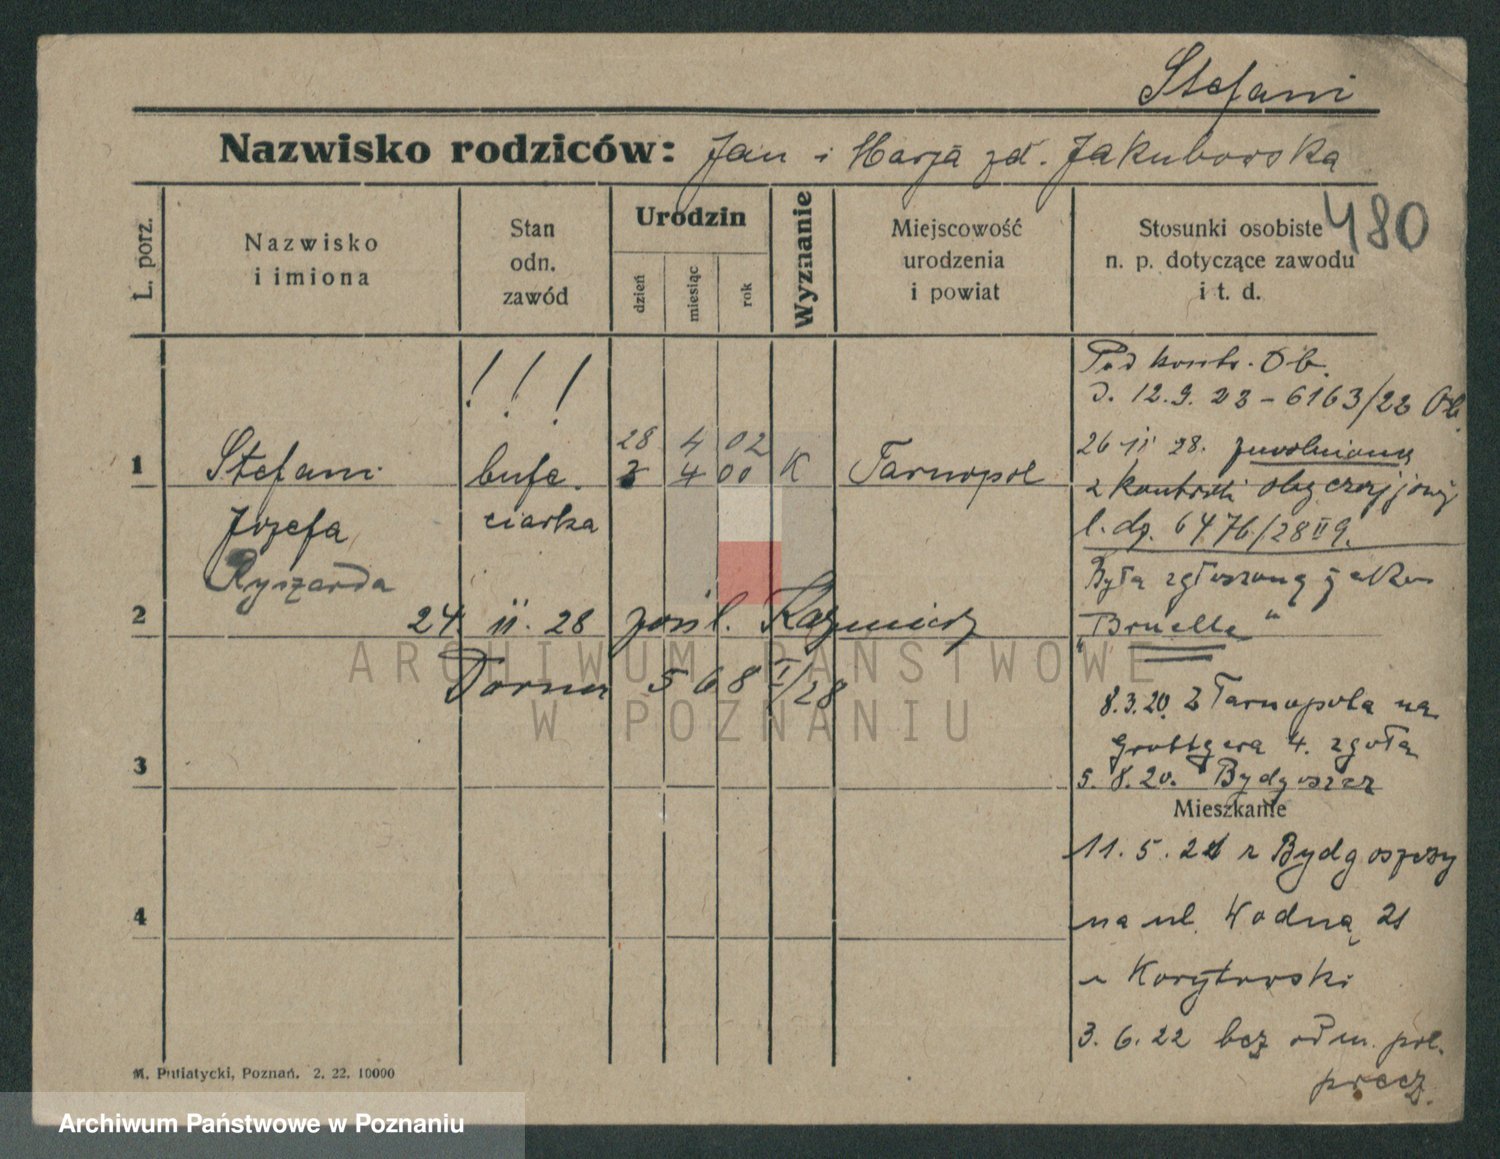 Stefani
Nazwisko rodziców: Jan i Marja zd. Jakubowska
480
L. porz.
Nazwisko
i imiona
Stan
odn.
zawód
Urodzin
dzień
miesiąc
rok
Wyznanie
Miejscowość
urodzenia
i powiat
Stosunki osobiste
n. p. dotyczące zawodu
i t. d.
! ! !
28 4 02
1 Stefani bufe. 4 00 K Tarnopol
Józefa ciarka
Ryszarda
2 24. II. 28 pośl. Kazmierz
Dorna 568 I/28
3
4
Pod kontr. Ob.
d. 12.9. 23 - 6163/22 Ob.
26 II 28. zwolniona
z kontroli obyczajowej
l. dz. 6476/28 II 9.
Była zgłoszoną jako
"Bruelle"
8.3.20. z Tarnopola na
Grottgera 4. zgoła
5. 8. 20. Bydgoszcz
Mieszkanie
11. 5. 21 z Bydgoszczy
na ul. Wodną 21
u Korytowski
3. 6. 22 bez odm. pol.
precz.
M. Putiatycki, Poznań. 2. 22. 10000
ARCHIWUM PAŃSTWOWE
W POZNANIU
Archiwum Państwowe w Poznaniu